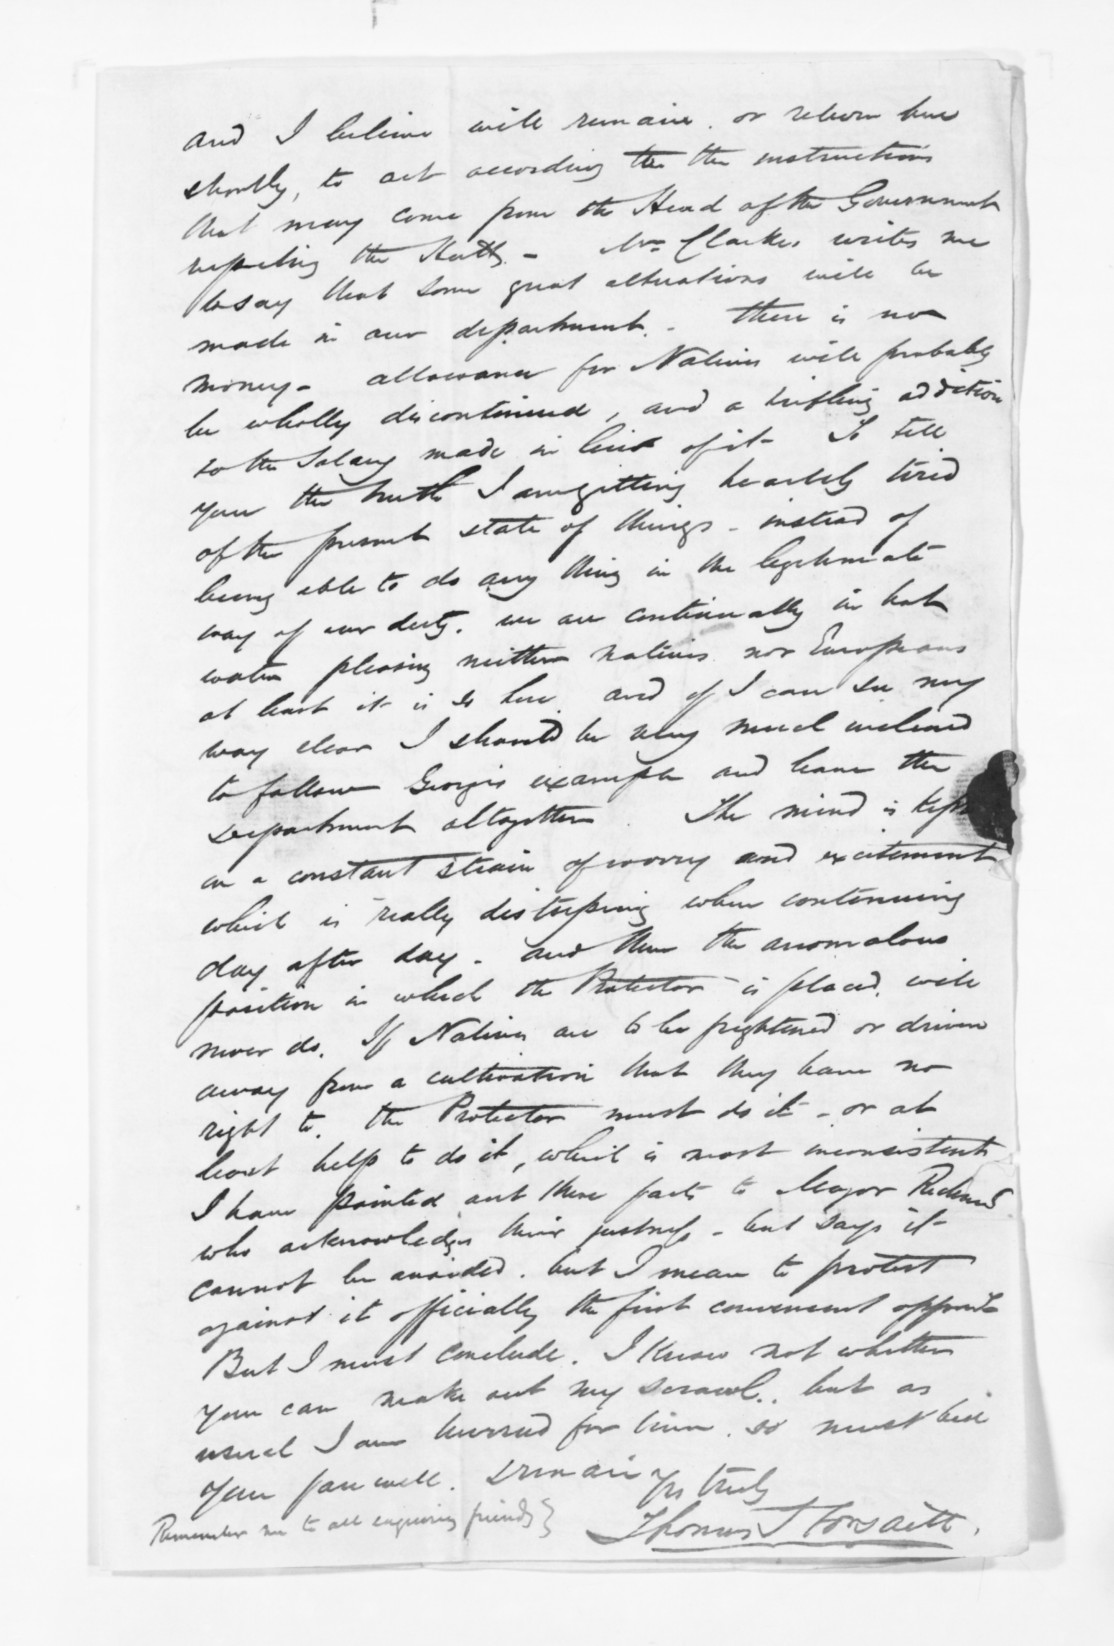 and I believe will remain. or return here
shortly, to act according to the instructions
that may come from the Head of the Government
respecting the Hutt. - Mr. Clarke, writes me
to say that some great alterations will be
made in our department. - there is no
money - allowance for Natives will probably
be wholly discontinued, and a trifling addition
to the Salary made in lieu of it - To tell
you the truth I am getting heartily tired
of the present state of things - instead of
being able to do any thing in the legitimate
way of our duty. we are continually in hot
water pleasing neither natives nor Europeans
at least it is so here. and if I can see my
way clear I should be very much inclined
to follow George's example and leave the
Department altogether. The mind is kept
on a constant strain of worry and excitement
which is really distressing when continuing
day after day. - and then the anomalous
position in which the Protector is placed. will
never do. If Natives are to be frightened or driven
away from a cultivation that they have no
right to. the Protector must do it - or at
least help to do it, which is most inconsistent
I have pointed out these facts to Major Richmond
who acknowledges their justness - but says it
cannot be avoided. but I mean to protest
against it officially the first convenient opport
But I must conclude. I know not whether
you can make out my scrawl.. but as
usual I am hurried for time. so must bid
you farewell. remain Yrs truly
Thomas S Forsaith.
Remember me to all enquiring friends }